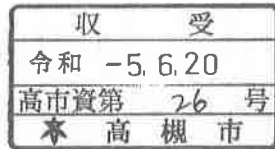 収受
令和 -5. 6. 20
高市資第 26 号
高槻市